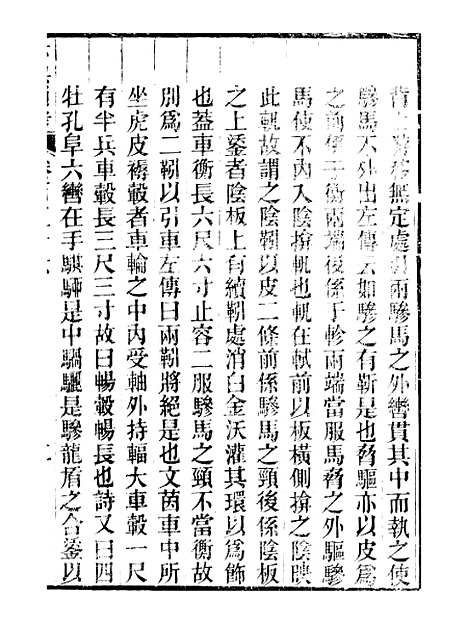 背上游移無定處引兩驂馬之外轡貫其中而執之使
驂馬不外出左傳云如驂之有靳是也脅驅亦以皮爲
之前係于衡兩端後係于軫兩端當服馬脅之外驅驂
馬使不內入陰揜軓也軓在軾前以板橫側揜之陰映
此軓故謂之陰靷以皮二條前係驂馬之頸後係陰板
之上鋈者陰板上有續靷處消白金沃灌其環以爲飾
也蓋車衡長六尺六寸止容二服驂馬之頸不當衡故
別爲二靷以引車左傳曰兩靷將絕是也文茵車中所
坐虎皮褥轂者車輪之中內受軸外持輻大車轂一尺
有半兵車轂長三尺三寸故曰暢轂暢長也詩又曰四
牡孔阜六轡在手騏駵是中騧驪是驂龍盾之合鋈以